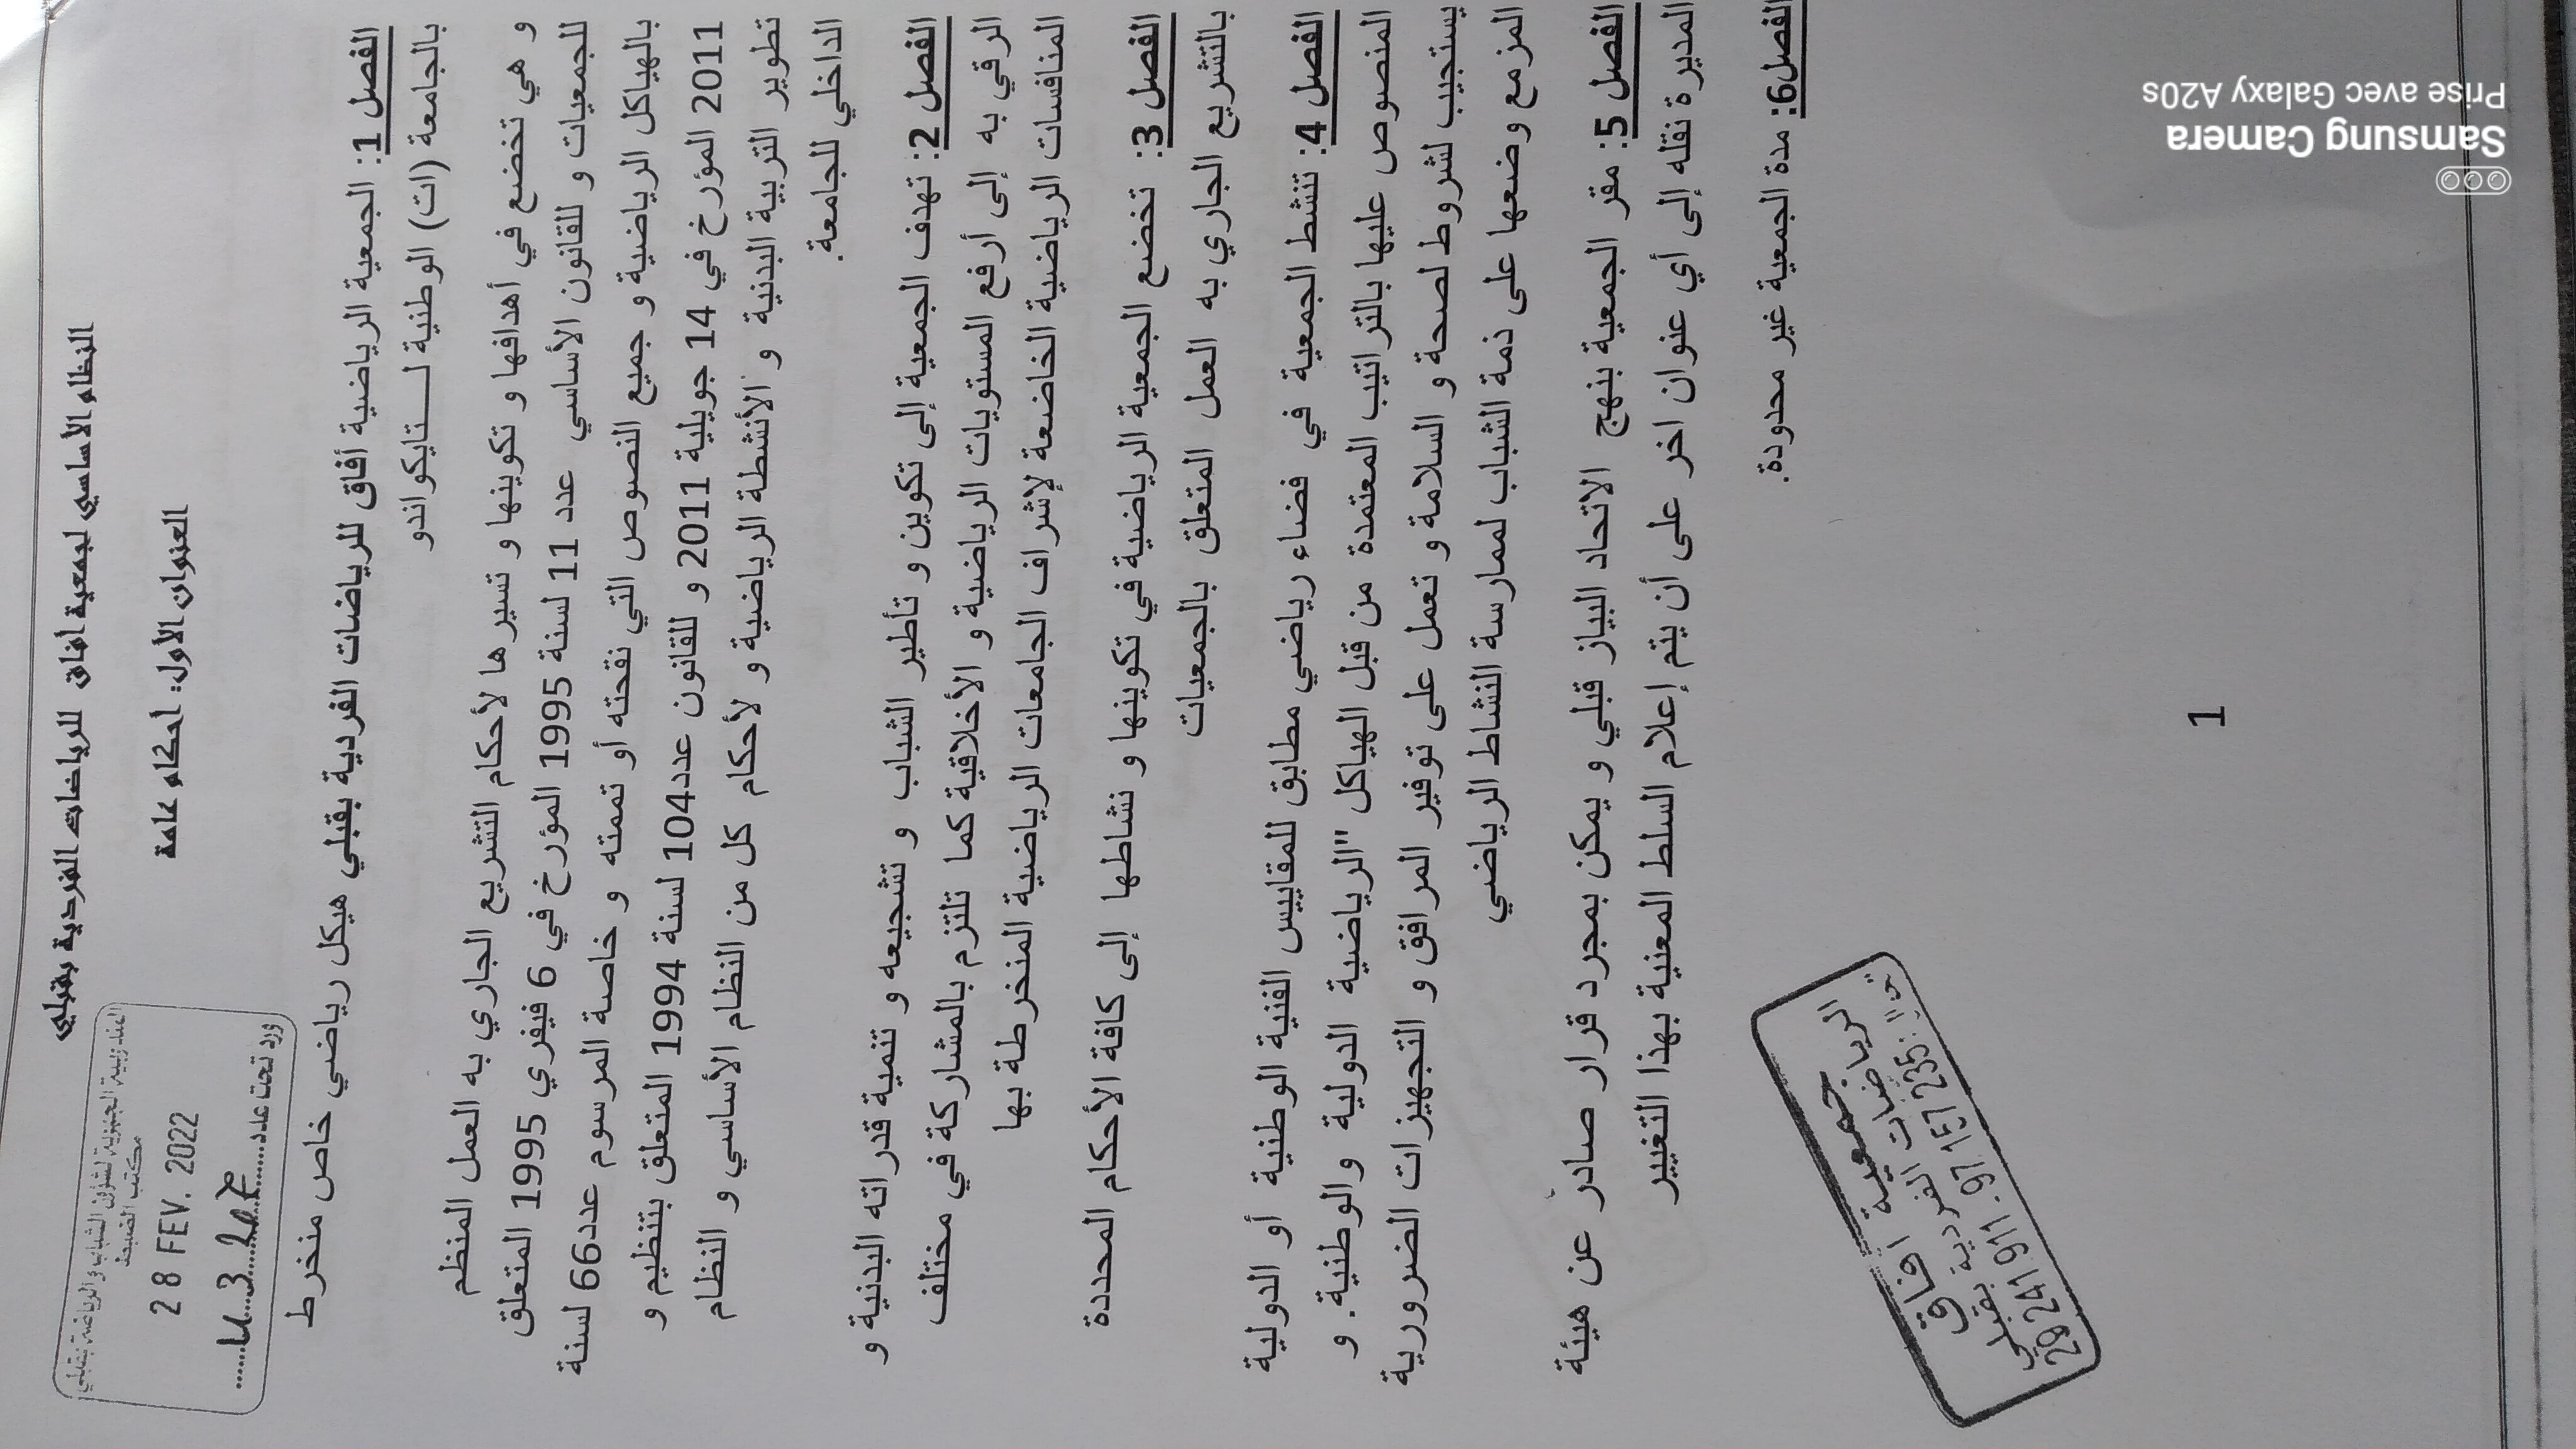 النظام الأساسي لجمعية افاق للرياضات الفردية بقبلي
العنوان الأول: أحكام عامة
المندوبية الجهوية لشؤون الشباب و الرياضة بقبلي
مكتب الضبط
28 FEV. 2022
ورد تحت عدد
الفصل 1: الجمعية الرياضية أفاق للرياضات الفردية بقبلي هيكل رياضي خاص منخرط
بالجامعة (ات) الوطنية لـــتايكواندو
و هي تخضع في أهدافها و تكوينها و تسييرها لأحكام التشريع الجاري به العمل المنظم
للجمعيات و للقانون الأساسي عدد 11 لسنة 1995 المؤرخ في 6 فيفري 1995 المتعلق
بالهياكل الرياضية و جميع النصوص التي نقحته أو تممته و خاصة المرسوم عدد66 لسنة
2011 المؤرخ في 14 جويلية 2011 و للقانون عدد104 لسنة 1994 المتعلق بتنظيم و
تطوير التربية البدنية و الأنشطة الرياضية و لأحكام كل من النظام الأساسي و النظام
الداخلي للجامعة.
الفصل 2: تهدف الجمعية إلى تكوين و تأطير الشباب و تشجيعه و تنمية قدراته البدنية و
الرقي به إلى أرفع المستويات الرياضية و الأخلاقية كما تلتزم بالمشاركة في مختلف
المنافسات الرياضية الخاضعة لإشراف الجامعات الرياضية المنخرطة بها
الفصل 3: تخضع الجمعية الرياضية في تكوينها و نشاطها إلى كافة الأحكام المحددة
بالتشريع الجاري به العمل المتعلق بالجمعيات
الفصل 4: تنشط الجمعية في فضاء رياضي مطابق للمقاييس الفنية الوطنية أو الدولية
المنصوص عليها بالتراتيب المعتمدة من قبل الهياكل "الرياضية الدولية والوطنية. و
يستجيب لشروط لصحة و السلامة و تعمل على توفير المرافق و التجهيزات الضرورية
المزمع وضعها على ذمة الشباب لممارسة النشاط الرياضي
الفصل 5: مقر الجمعية بنهج الاتحاد البياز قبلي و يمكن بمجرد قرار صادر عن هيئة
المديرة نقله إلى أي عنوان اخر على أن يتم إعلام السلط المعنية بهذا التغيير
الفصل6: مدة الجمعية غير محدودة.
جمعية افاق
الرياضات الفردية بقبلي
29 241 911 . 97 157 235
1
Samsung Camera
Prise avec Galaxy A20s